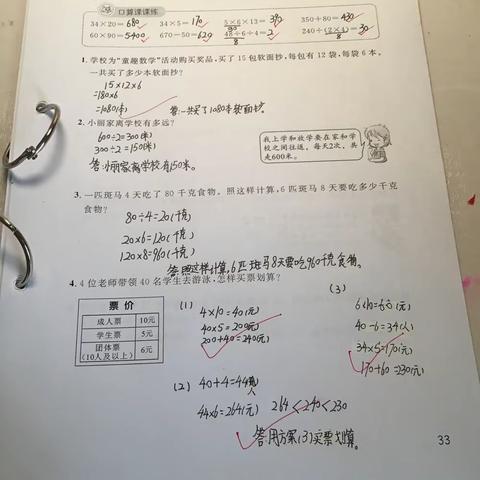 口算课课练
34×20=680 34×5=170 5×6×13=390 350+80=430
30
60×90=5400 670-50=620 48÷6÷4=2 240÷(2×4)=30
8 8
1.学校为“童趣数学”活动购买奖品,买了15包软面抄,每包有12袋,每袋6本。
一共买了多少本软面抄?
15×12×6
=180×6
=1080(本)
答:一共买了1080本软面抄.
2.小丽家离学校有多远?
600÷2=300(米)
300÷2=150(米)
答:小丽家离学校有150米。
我上学和放学要在家和学
校之间往返,每天2次,共
走600米。
3.一匹斑马4天吃了80千克食物。照这样计算,6匹斑马8天要吃多少千克
食物?
80÷4=20(千克)
20×6=120(千克)
120×8=960(千克)
答:照这样计算,6匹斑马8天要吃960千克食物。
4.4位老师带领40名学生去游泳,怎样买票划算?
票价
成人票 10元
学生票 5元
团体票
(10人及以上) 6元
(1)
4×10=40(元)
40×5=200(元)
200+40=240(元)
(3)
6×10=60(元)
40-6=34(人)
34×5=170(元)
170+60=230(元)
(2) 40+4=44
人
44×6=264(元) 264<240<230
答:用方案(3)买票划算。
33